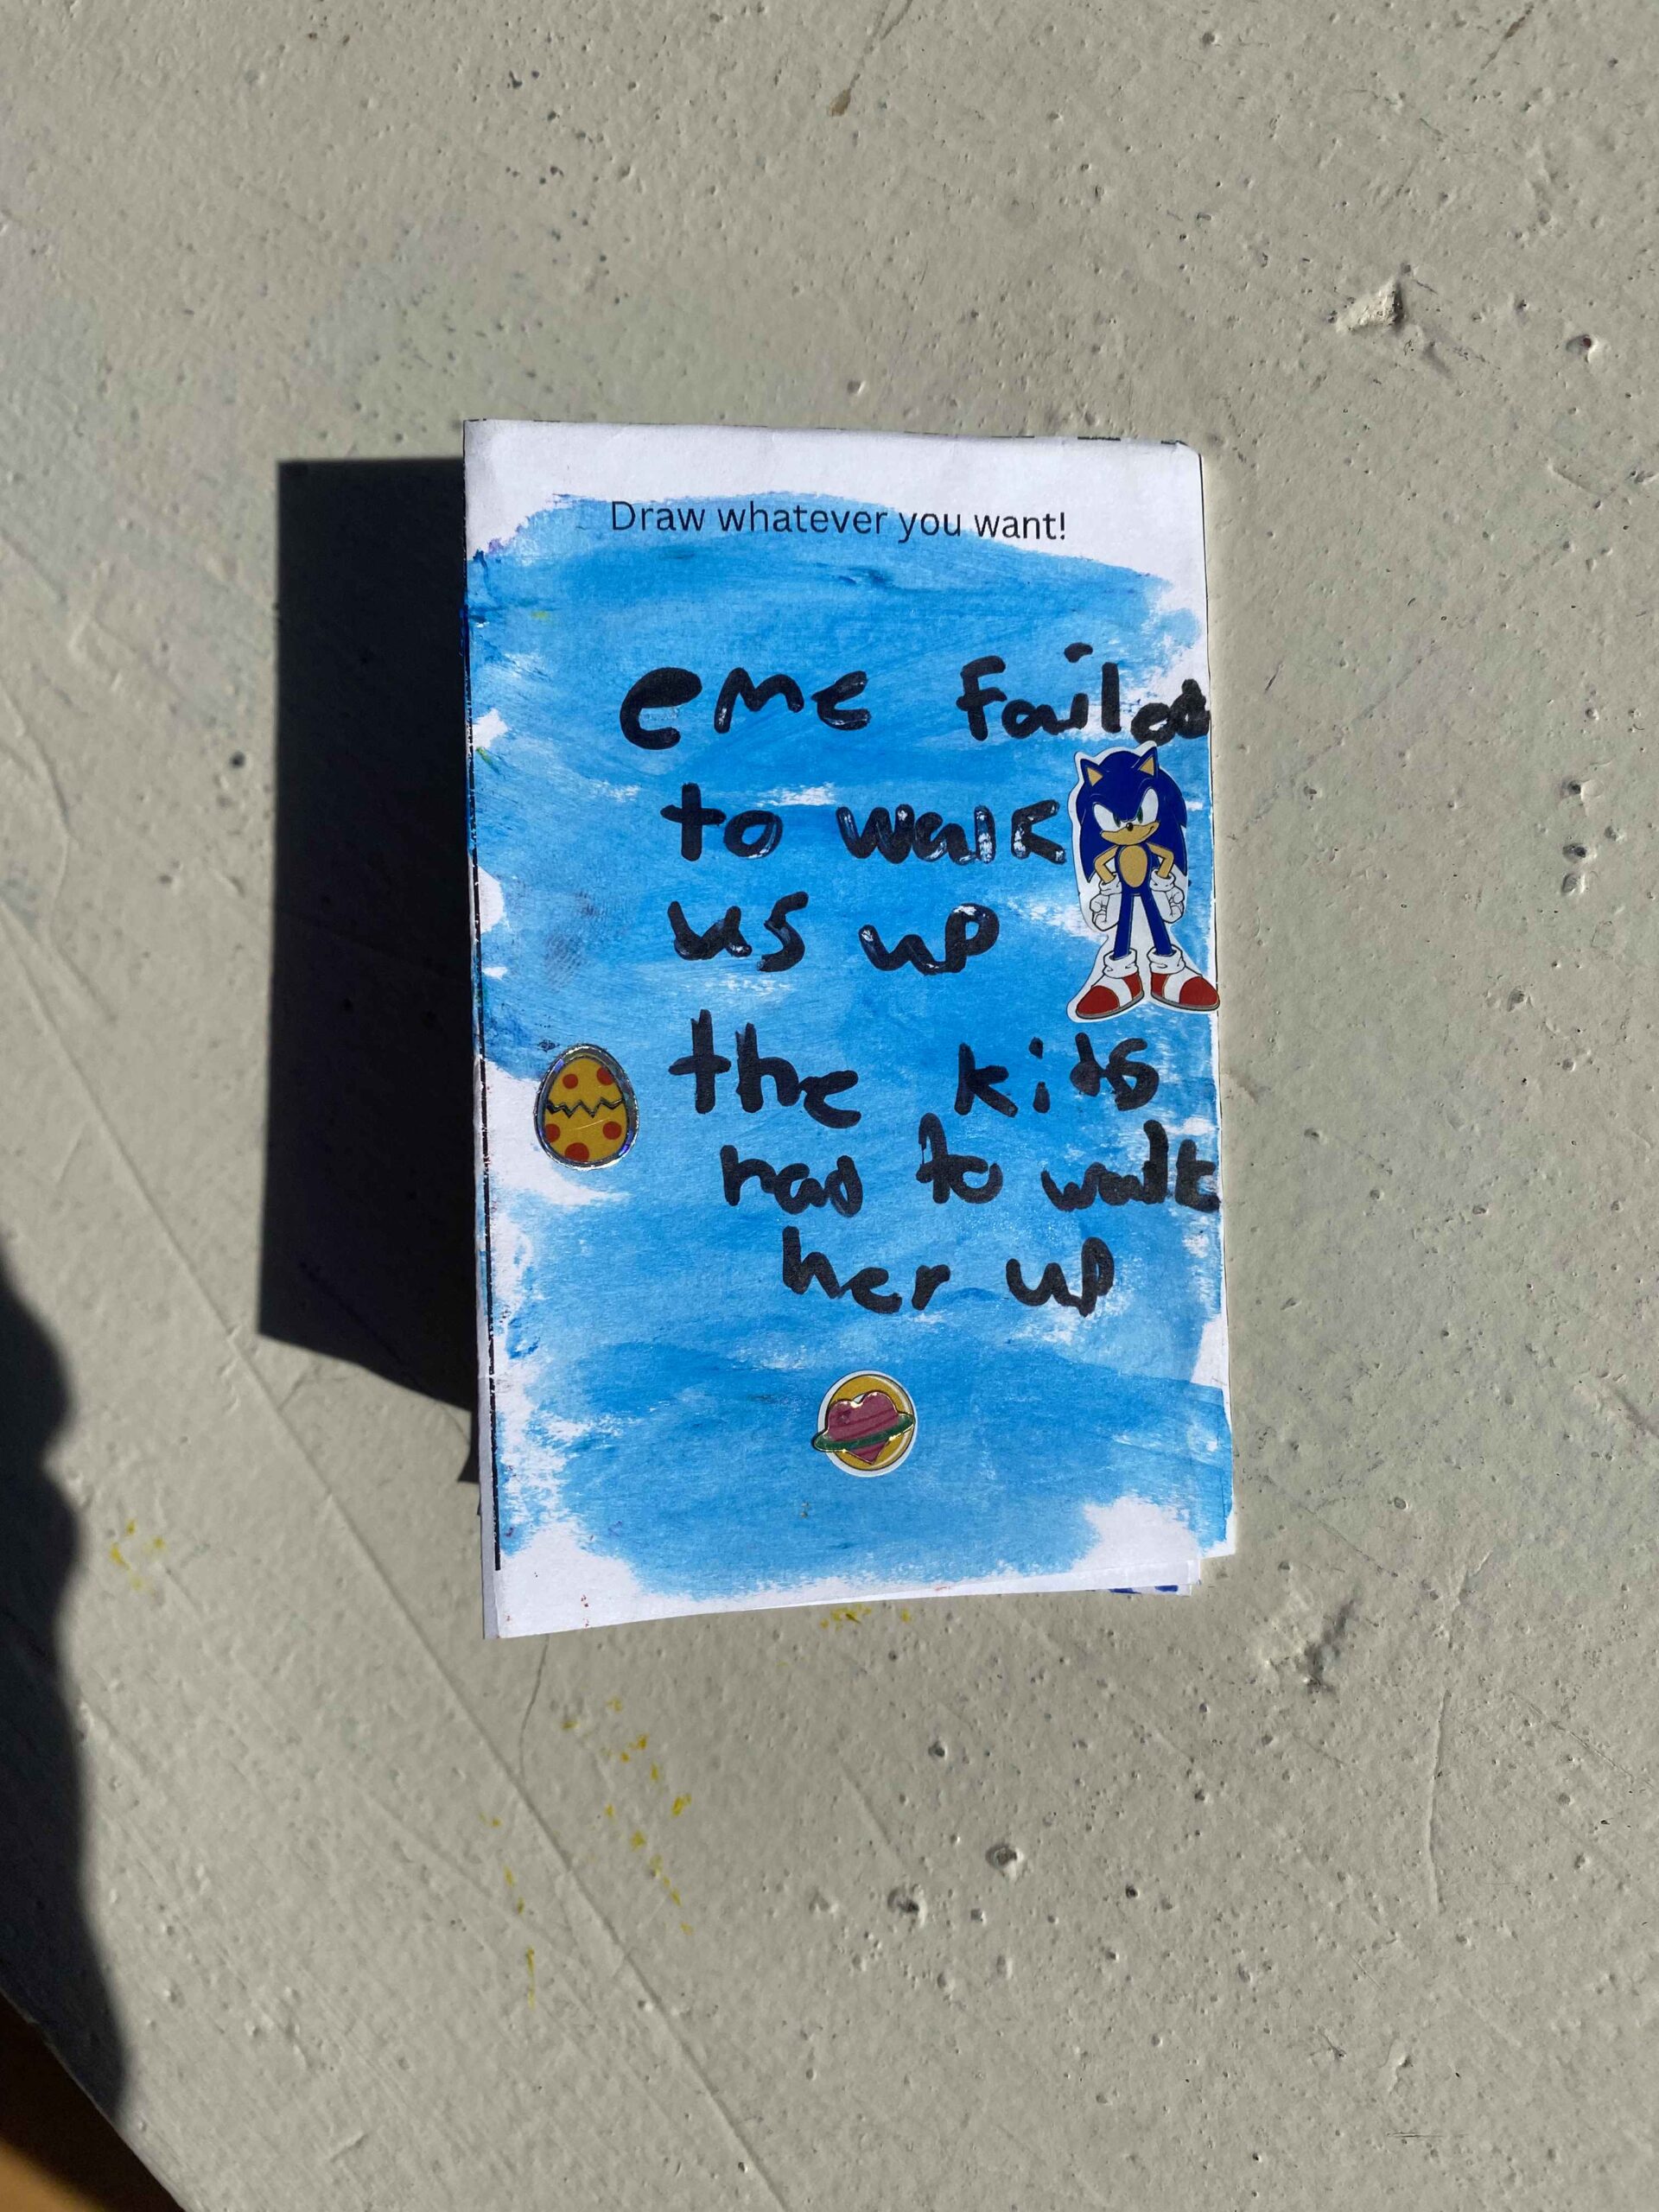 Draw whatever you want!
eme failed
to walk
us up
the kids
had to walk
her up